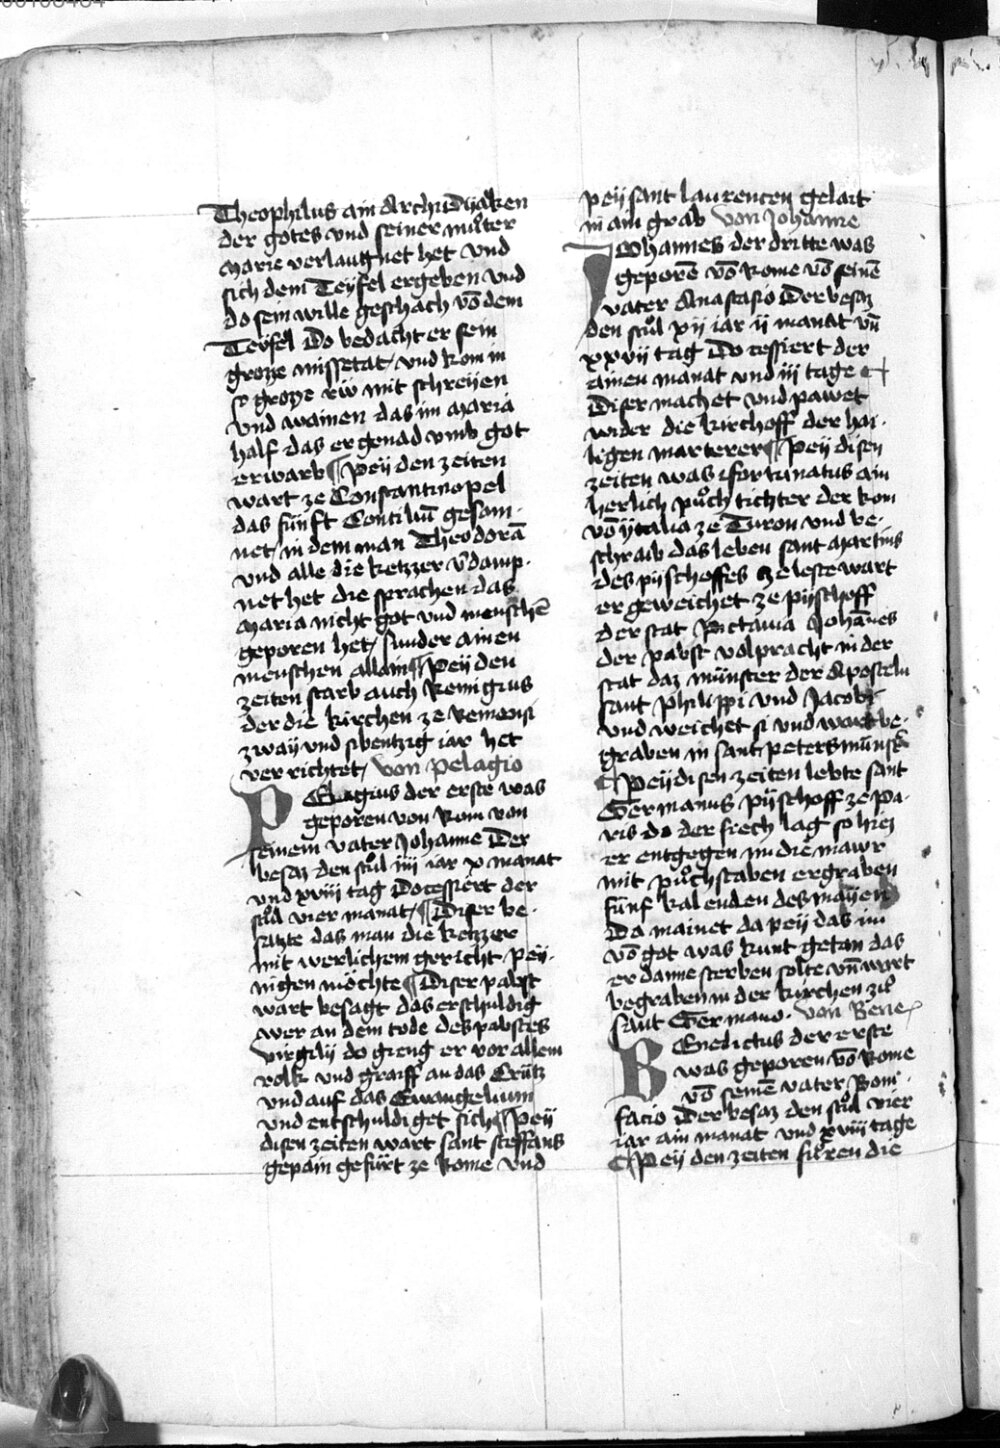 Theophilus ain Archidyaken
der gotes vnd seiner muͦter
Marie verlaugnet het vnd
sich dem Teyfel ergeben vnd
do sein wille geschach vō dem
Teyfel Do bedacht er sein
groze missetat / vnd kom in
so groze riw mit schreyen
vnd wainen das im Maria
half das er genad vmb got
erwarb ¶ Pey den zeiten
wart ze Constantinopel
das fünft Conciliū gesam-
net / in dem man Theodorā
vnd alle die ketzer v̄damp-
net het die sprachen das
Maria nicht got vnd menschē
geporen het / sunder ainen
menschen allain ¶ Pey den
zeiten starb auch Remigius
der die kirchen ze Remensi
zway vnd sibentzig iar het
verrichtet / von pelagio
PElagius der erste was
geporen von Rom von
seinem vater Johanne Der
besaz den stuͦl iiij iar x manat
vnd xviij tag Do cessiert der
stuͦl vier manat / ¶ Diser be-
satzte das man die ketzer
mit werlichem gericht pey-
nigen möchte ¶ Diser pabst
wart besagt das er schuldig
wer an dem tode des pabstes
virgilij do gieng er vor allem
volk vnd graiff an das Crütz
vnd auf das Ewangelium
vnd entschuldiget sich ¶ Pey
disen zeiten wart sant steffans
gepain gefürt ze Rome vnd
pey sant laurencen gelait
in ain grab von Johanne
JOhannes der dritte was
geporē vō Rome vō seinē
vater Anastasio Der besaz
den stuͦl xij iar ij manat vn̄
xxvij tag Do cessiert der
ainen manat vnd iij tage
Diser machet vnd pawet
wider die kirchoff der hai-
ligen marterer ¶ Pey disen
zeiten was ffortunatus ain
herlich puͦch tichter der kom
vō ytalia ze Turon vnd be-
schraib das leben sant Martins
des pyschoffes ze leste wart
er geweichet ze pyschoff
der stat Pictauia Johānes
der pabst volpracht in der
stat daz münster der Aposteln
sant Philippi vnd Jacobi
vnd weichet si vnd wart be-
graben in sant peters münst̄
¶ Pey disen zeiten lebte sant
Germanus pyschoff ze Pa-
ris do der siech lag so hiez
er entgegen in die mawr
mit puͦchstaben ergraben
fünf kalenden des mayen
Da mainet da pey das im
vō got was kunt getan das
er danne sterben solte vn̄ wart
begraben in der kirchen zuͦ
sant Germano . von Bene
BEnedictus der erste
was geporen vō Rome
vō seinē vater Boni-
facio Der besaz den stuͦl vier
iar ain manat vnd xviij tage
¶ Pey den zeiten fuͦren die